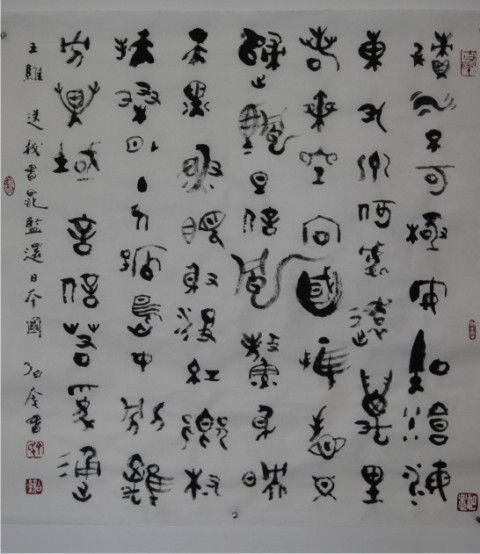 積水不可極安知滄海
東九州何處遠萬里
若乘空向國惟看日
歸帆但信風鰲身映
天黑魚眼射波紅鄉樹
扶桑外主人孤島中別離
方異域音信若為通
王維 送秘書晁監還日本國 書